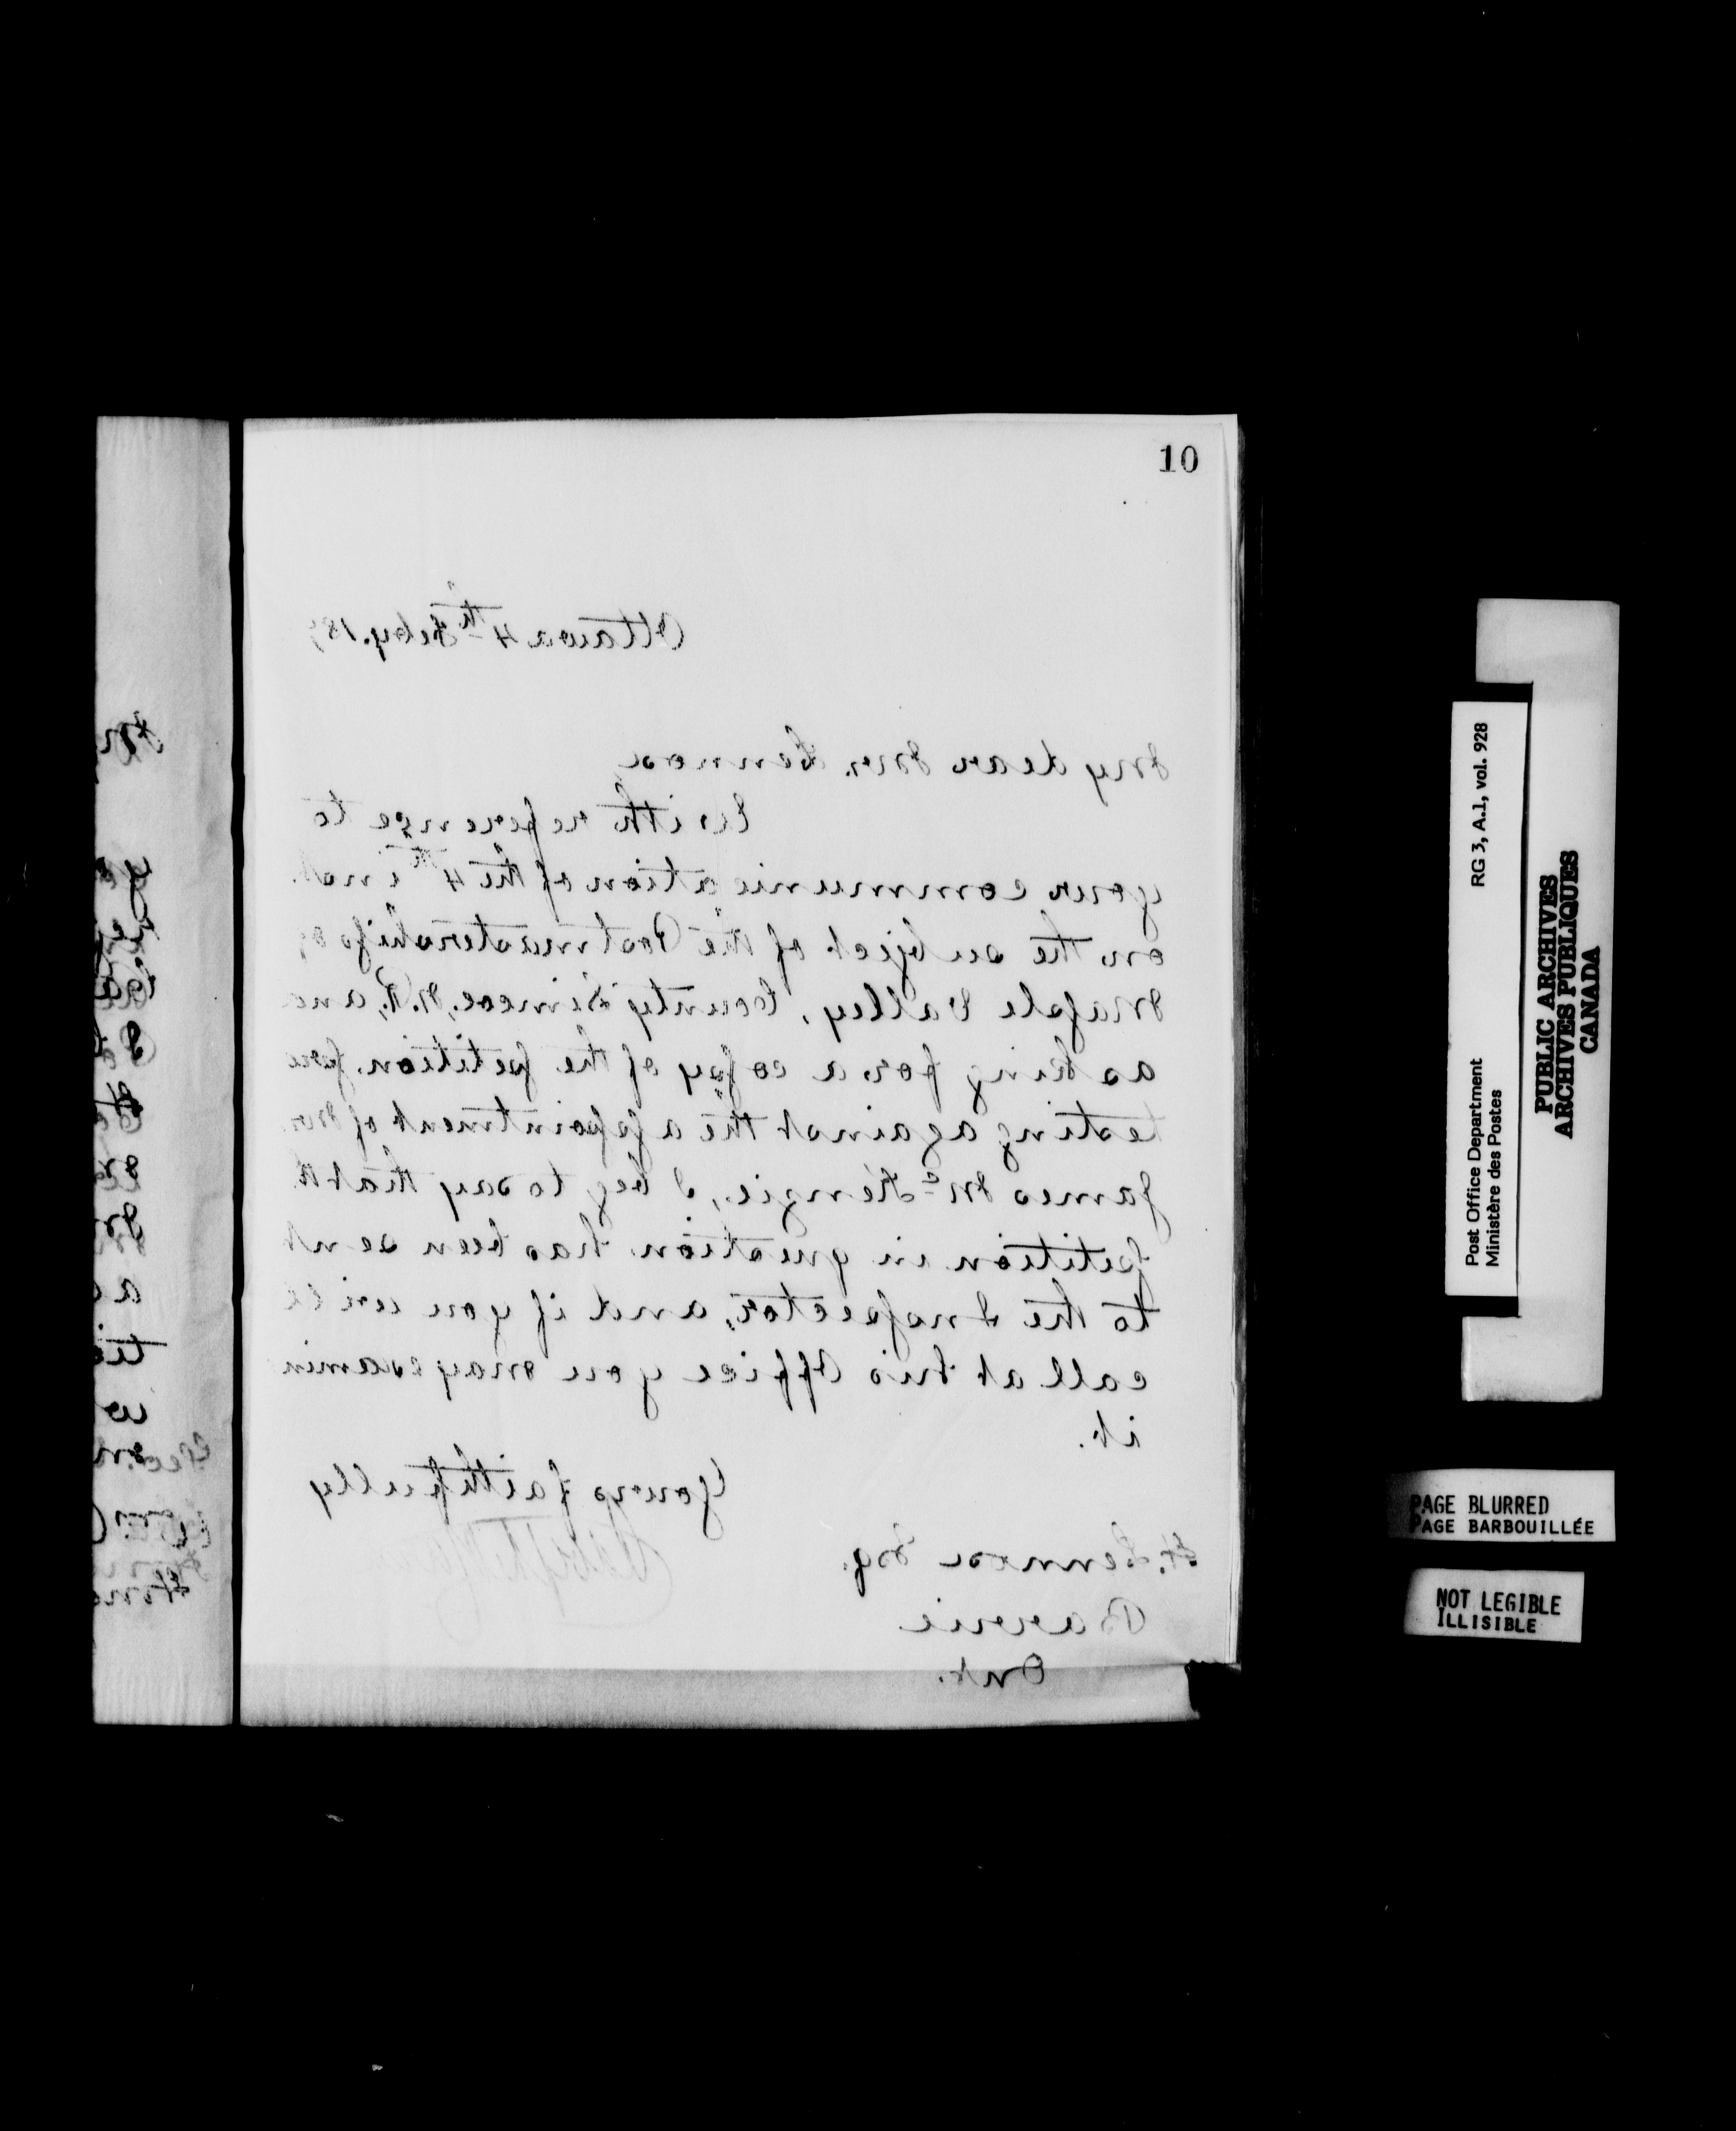 10
Ottawa 4th Feby. 18
My dear Mr. Lennox
With reference to
your communication of the 4th inst.
on the subject of the Postmastership
Maple Valley, County Simcoe, N.R., and
asking for a copy of the petition pro
testing against the appointment of Mr.
James McKenzie, I beg to say that th
petition in question has been sent
to the Inspector, and if you will
call at his Office you may examin
it.
Yours faithfully
H. Lennox Esq.
Barrie
Ont.
Post Office Department
Ministère des Postes
RG 3, A.1, vol. 928
PUBLIC ARCHIVES
ARCHIVES PUBLIQUES
CANADA
PAGE BLURRED
PAGE BARBOUILLÉE
NOT LEGIBLE
ILLISIBLE